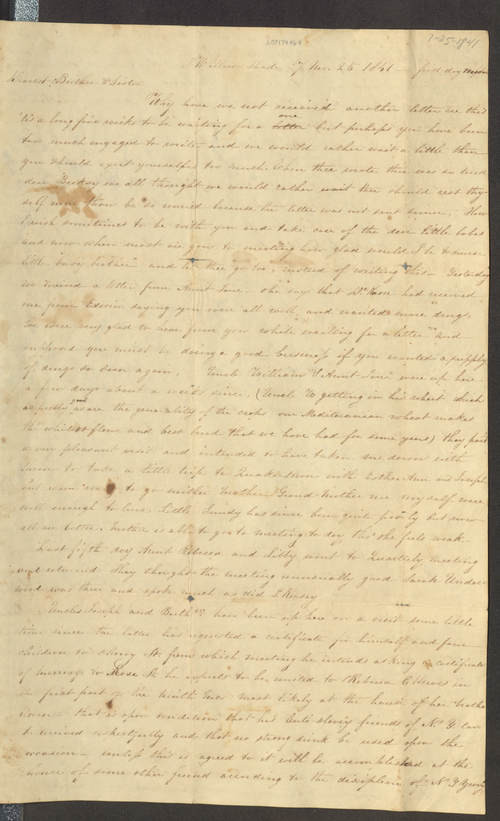 7-25-1841
7 Mo 25 1841 — first day
Dearest Brother & Sister
Why have we not received another letter are this
tis a long five weeks to be waiting for a letter one but perhaps you have been
too much engaged to write and we would rather wait a little than
you should exert yourselves too much. When thee wrote thee was so tired
dear we all thought we would rather wait thee should rest thy
self more than be so worried because the letter was not sent sooner. How
I wish sometimes to be with you and take care of the dear little babes
and now when most are gone to meeting how glad would I be to nurse
little "brother" and let thee go too, instead of writing this. Yesterday
we received a letter from Aunt Jane — she says that Dr had received
one from Edwin saying you were all well and wanted more drugs.
We were very glad to hear from you while waiting for a letter and
supposed you must be doing a good business if you wanted a supply
of drugs so soon again. Uncle William & Aunt Jane were up here
a few days about a week since, (Uncle W getting in his wheat which
is pretty good as are the generality of the crops our Mediteranian wheat makes
the whitest flour and best bread that we have had for some years) they paid
a very pleasant visit and intended to have taken me down with
them to take a little trip to Quakertown with Esther Ann and Joseph
but I was to go neither Mother, Grand Mother nor myself were
well enough to leave. Little has since been quite poorly but now
all are better. Mother is able to go to meeting to day tho' she feels weak
Last fifth day Aunt Rebecca and Libby went to Quarterly meeting
and returned. They thought the meeting unusually good Sarah Under-
wood was there and spoke much as did
Uncles Joseph and have been up here on a visit some little
time since the latter has requested a certificate for himself and four
children to Cherry St from which meeting he intends asking a certificate
of marriage to Rose St he expects to be united to Rebecca C in
the first part of the Ninth Mo most likely at the house of her brother
that is upon condition that his Anti slavery friends of N Y can
be received respectfully and that no strong drink be used upon the
occasion — unless this is agreed to it will be accomplished at the
house of some other friend according to the discipline of N Y yearly